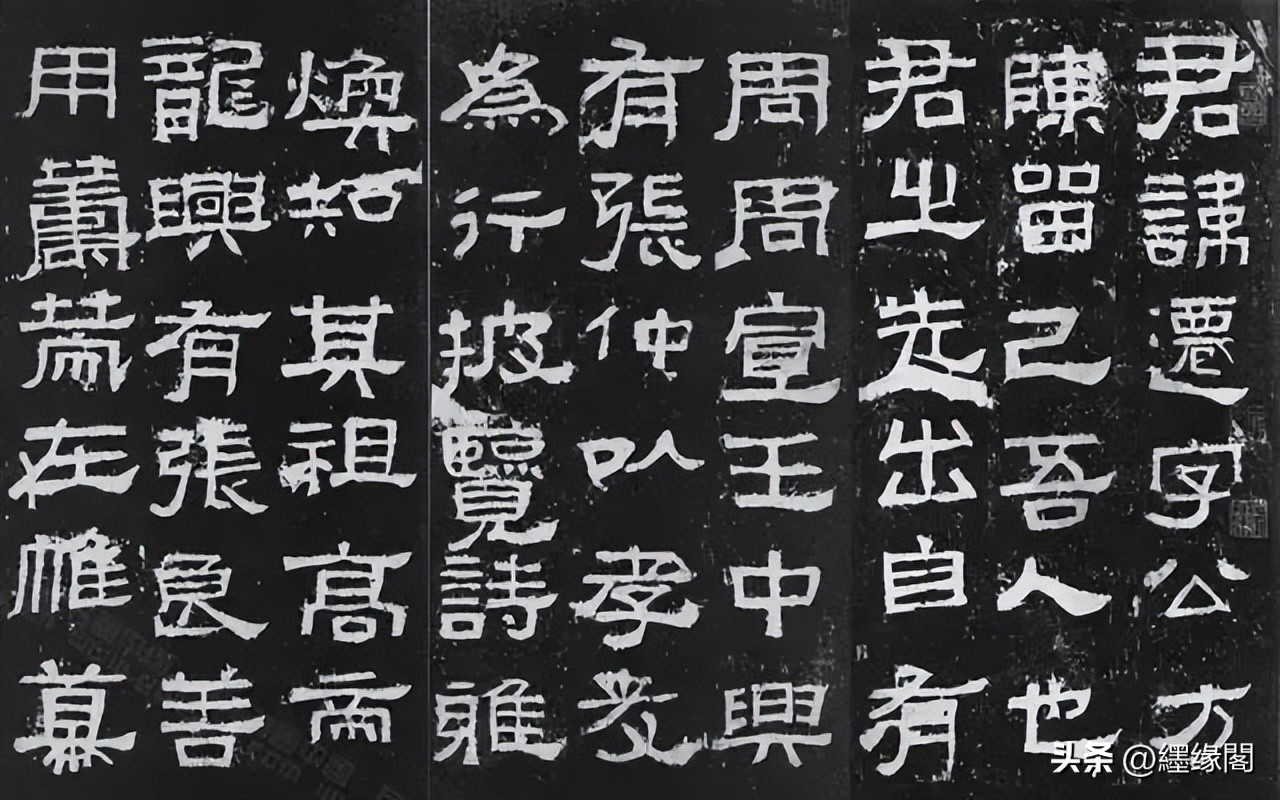 君諱遷字公方
陳留己吾人也
君之先出自有
周周宣王中興
有張仲以孝友
為行披覽詩雅
煥知其祖高帝
龍興有張良善
用籌策在帷幕
头条 @纆缘閣